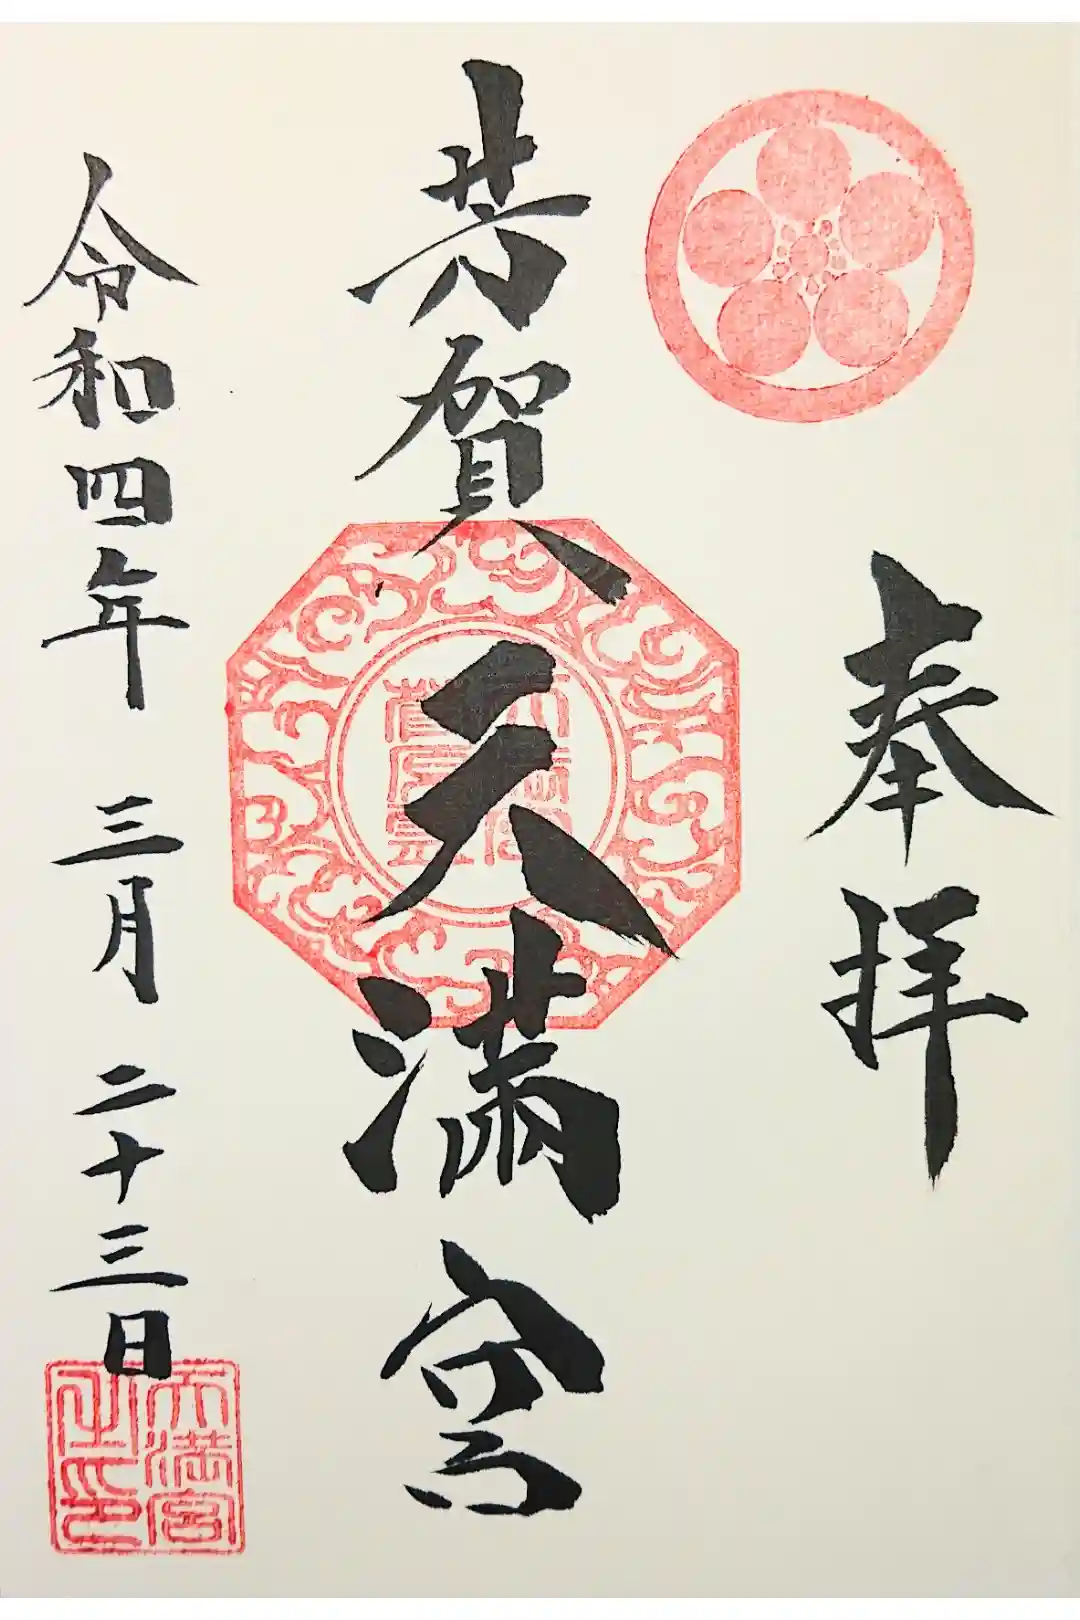 奉拝
芳賀天満宮
令和四年 三月 二十三日
天満宮
之印